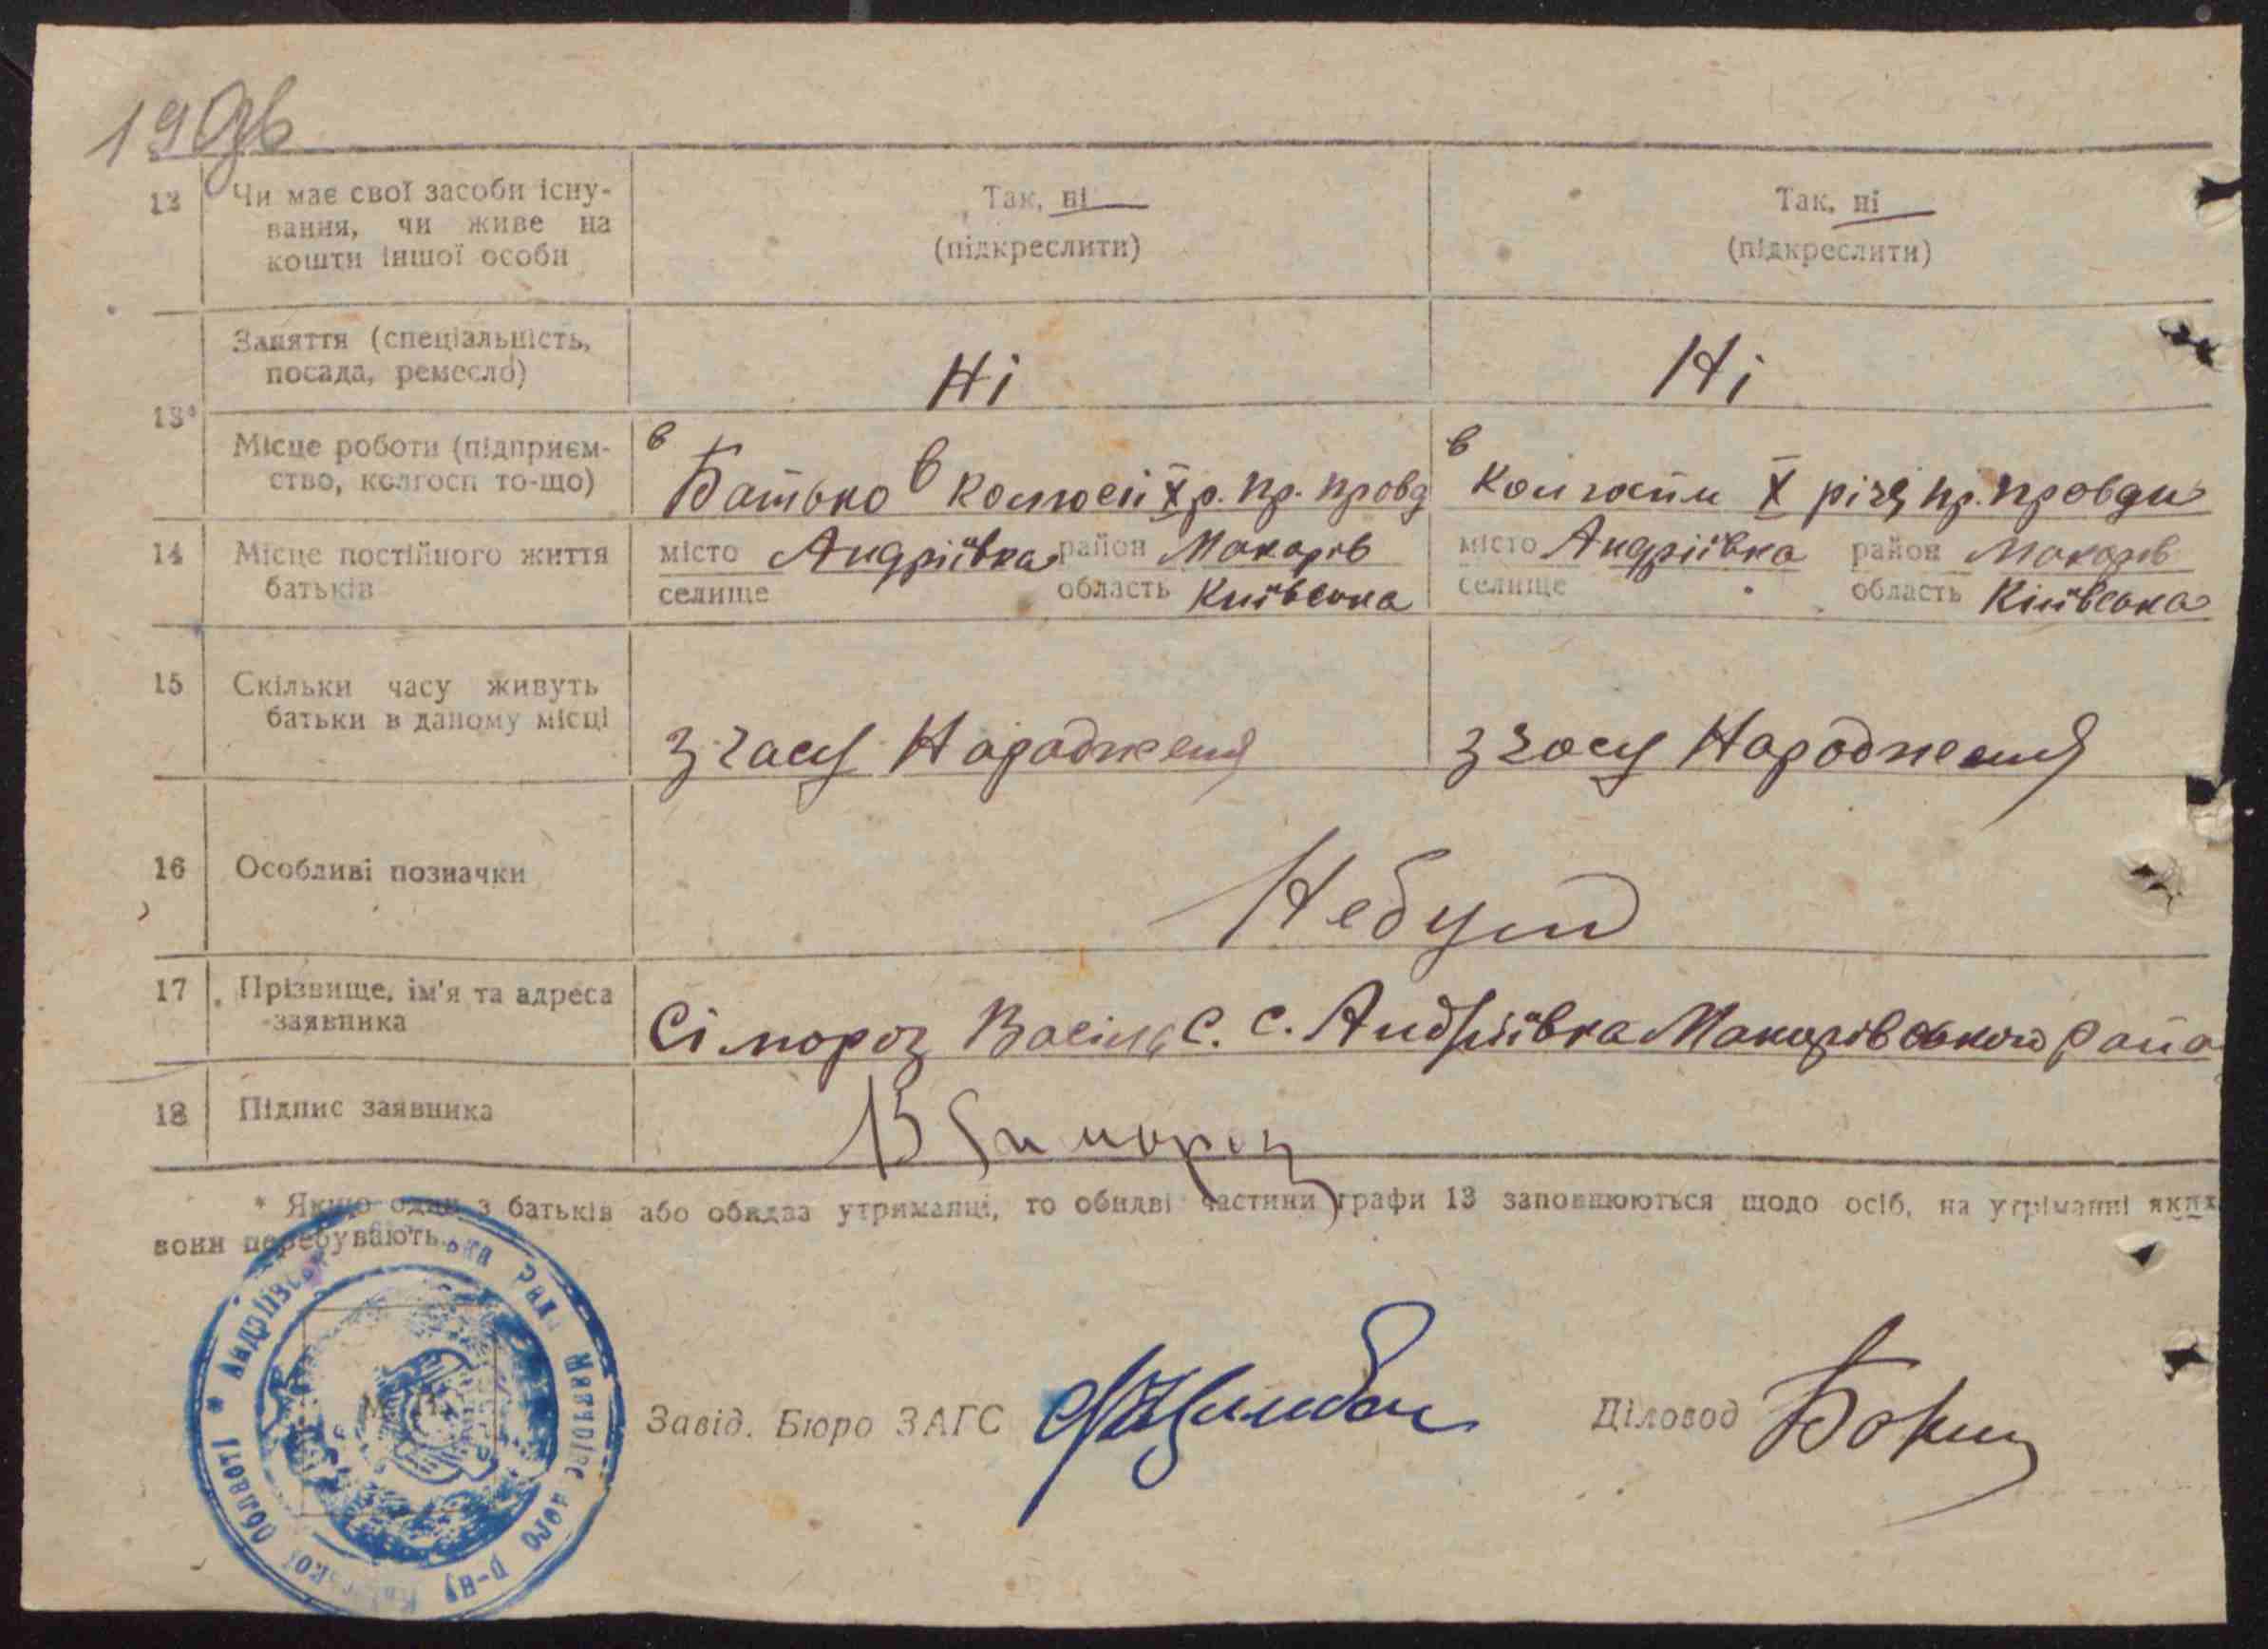 190зв
12 Чи має свої засоби існу-
вання, чи живе на
кошти іншої особи
Так, ні
(підкреслити)
Так, ні
(підкреслити)
13* Заняття (спеціальність,
посада, ремесло)
Ні
Ні
Місце роботи (підприєм-
ство, колгосп то-що)
в
Батько в колгосп Х р. пр. провд
в
Х річя пр. провди
14 Місце постійного життя
батьків
місто Андріївка район Макарів
селище область Київська
місто Андріївка район Макарів
селище область Київська
15 Скільки часу живуть
батьки в даному місці
з часу Народженя
з часу Народженя
16 Особливі позначки
17 Прізвище, ім'я та адреса
заявника
Сімороз Васіль с. с. Андріївка Макарівською
18 Підпис заявника
В Симороз
* Якщо один з батьків або обидва утриманці, то обидві частини графи 13 заповнюються щодо осіб, на утріманні яких
вони перебувають.
Завід. Бюро ЗАГС
Діловод
М. П.